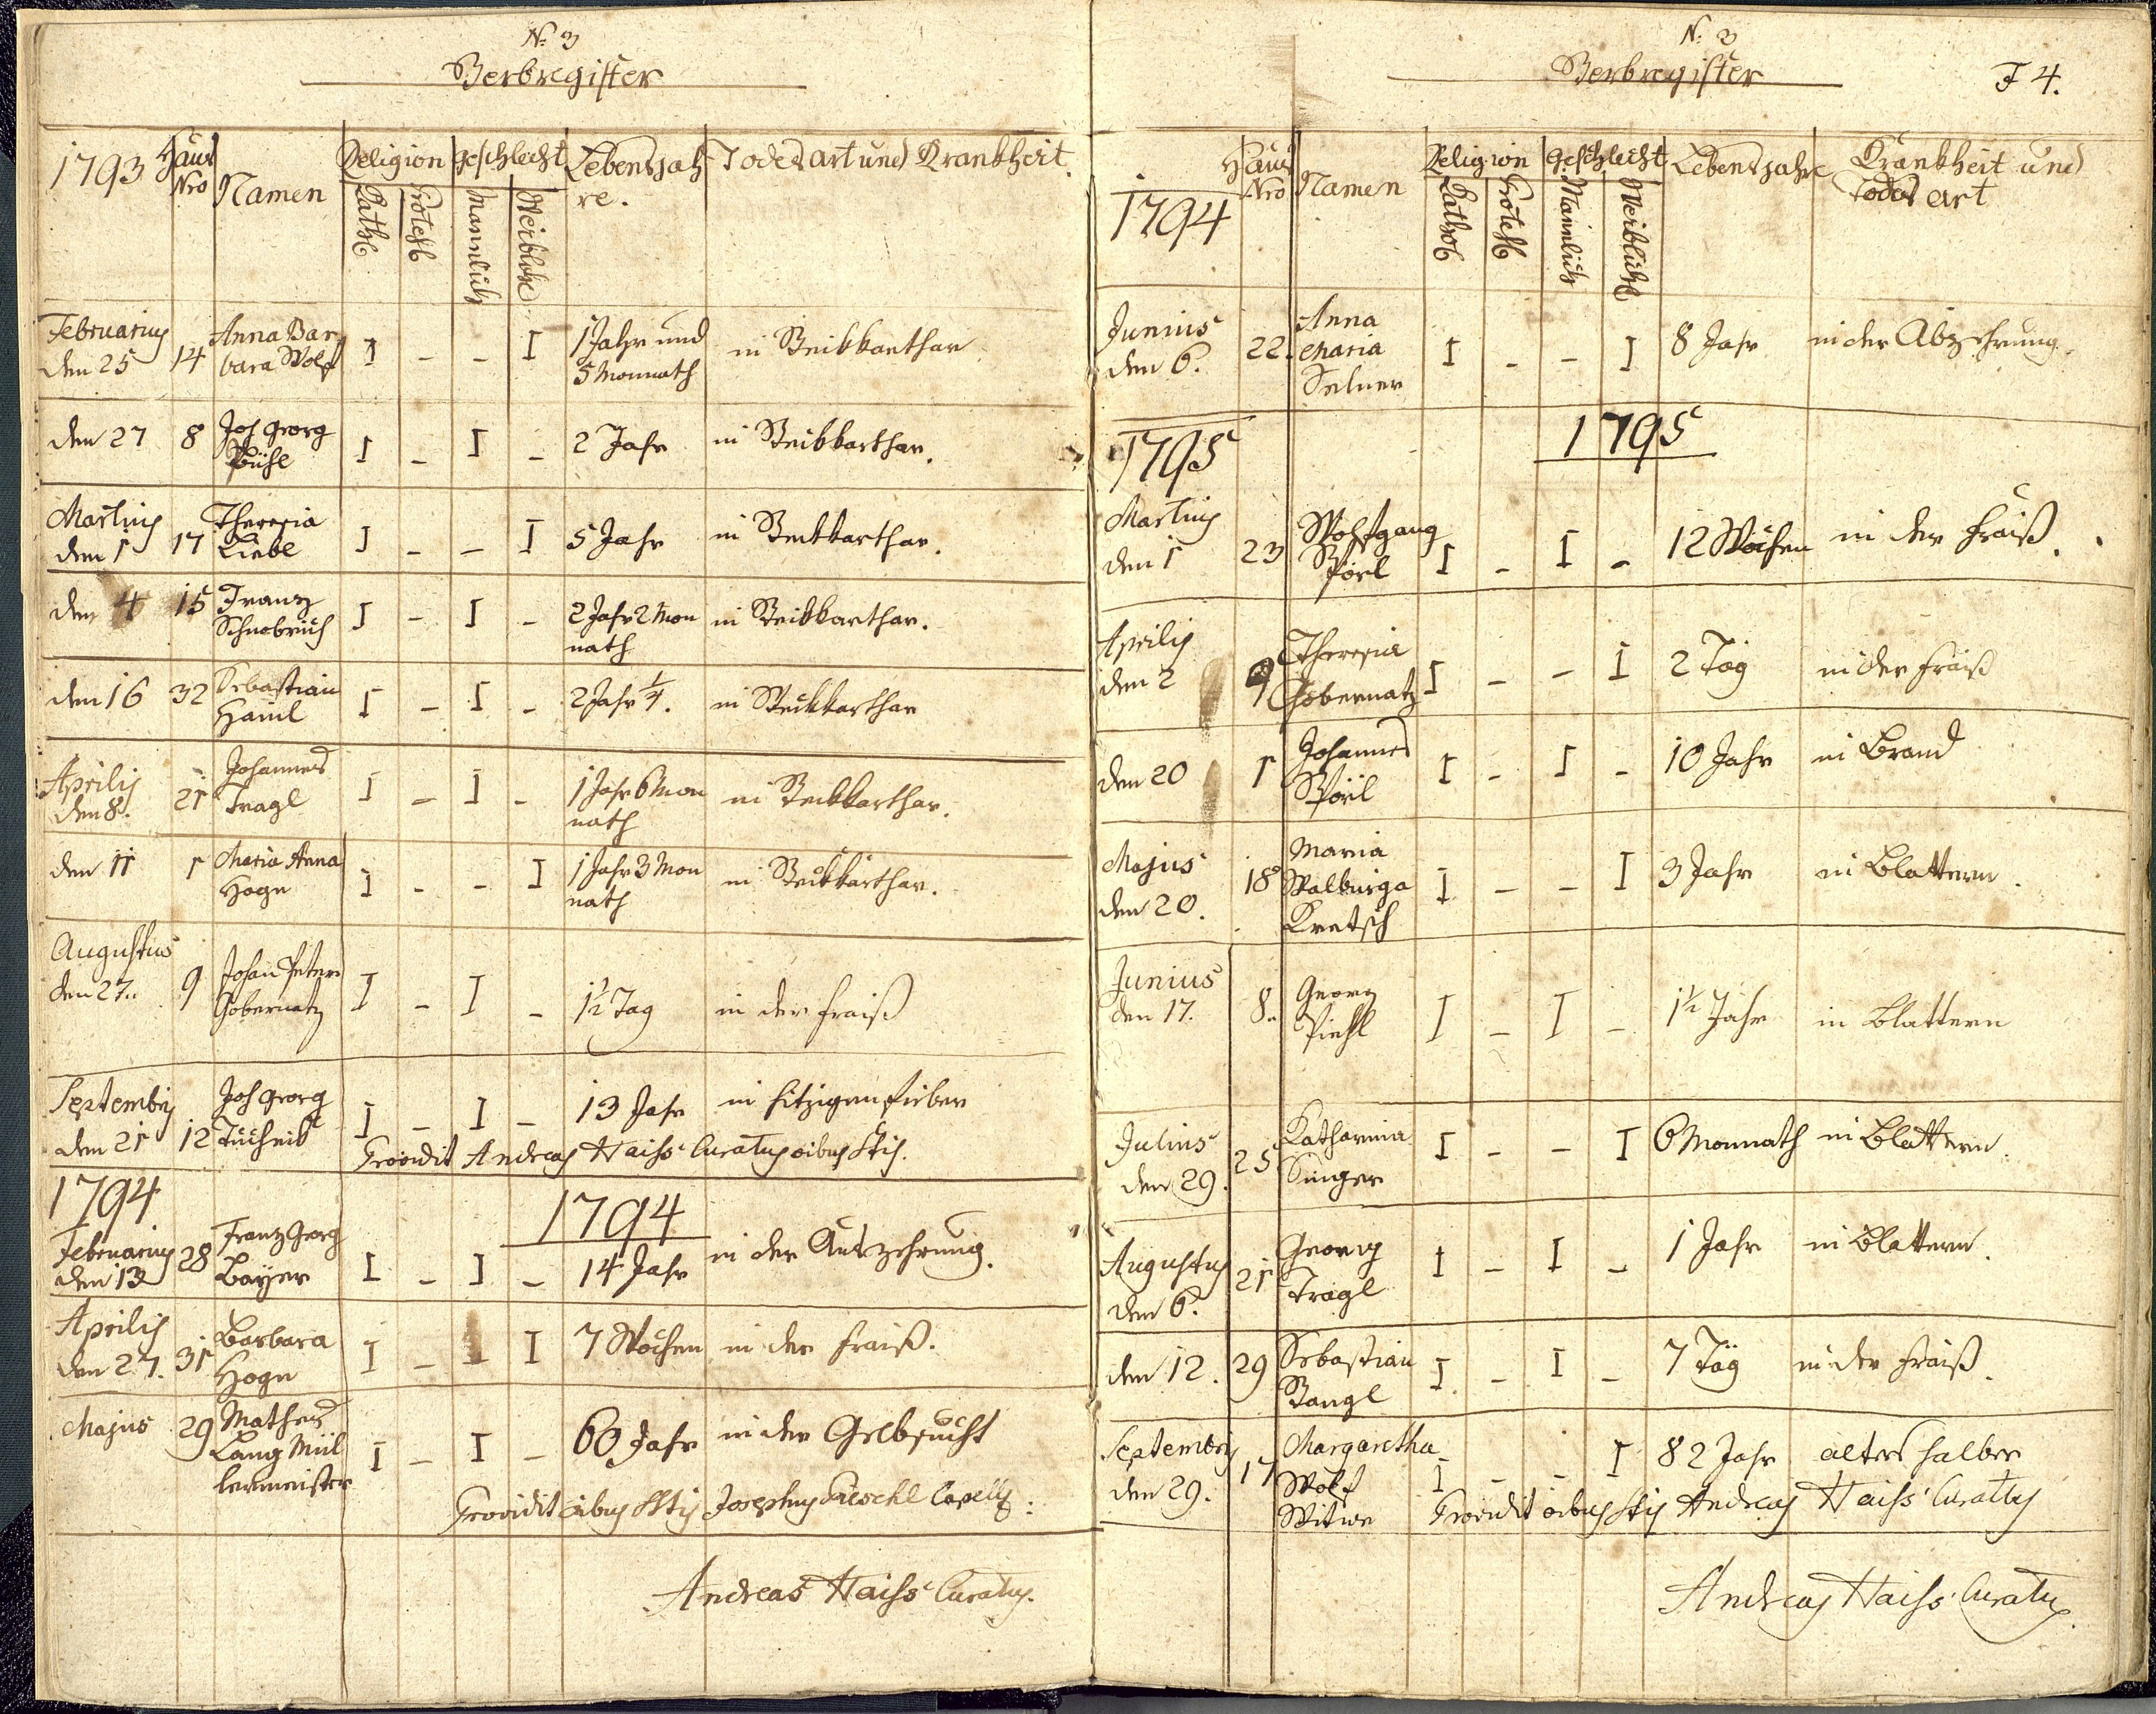 N: 3
Sterbregister
1793
Haus Nro
Namen
Religion
Kathl
Protestl
geschlecht
Mannlich
Weiblich
Lebensjah
re.
Todes art und Krankheit.
Februarius Anna Bar
den 25 14 bara Wolf I - - I 1 Jahr und
5 Monnath in Steikkarthar
den 27 8 Joh georg
Pühl I - I - 2 Jahr in Steikkarthar.
Martius Theresia
den 1 17 Liebl I - - I 5 Jahr in Steikkarthar.
den 4 15 Franz
Schnobrich I - I - 2 Jahr 2 Mon
nath in Steikkarthar.
den 16 32 Sebastian
Haml I - I - 2 Jahr 1/4. in Steikkarthar
Aprilis Johannes
den 8. 21 Tragl I - I - 1 Jahr 6 Mon
nath in Steikkarthar.
den 11 1 Maria Anna
Hogn I - - I 1 Jahr 3 Mon
nath in Steikkarthar.
Augustus
den 27. 9 Johan Peter
Gobernatz I - I - 1½ Tag in der Fraiß
Septembris Joh georg
den 21 12 I - I - 13 Jahr in hitzigen fieber
Providit Andreas Haiss Curatus oibus Stis.
1794
1794
Februarius 28 Franz Georg
den 13 Bayer I - I - 14 Jahr in der Auszehrung.
Aprilis
den 27. 31 Barbara
Hogn I - - I 7 Wochen in der fraiß.
Majus 29 Mathes
Lang Mül
lermeister I - I - 60 Jahr in der Gelbsucht
Providit oibus Sstis Josephus Lieschl Capells:
Andreas Haiss Curatus.
N: 3
Sterbregister
F 4.
1794
Haus Nro
Namen
Religion
Kathol
Protestl
geschlecht
Mannlich
Weiblich
Lebensjahre
Krankheit und
Todes art
Junius
den 6. 22. Anna
Maria
Selner I - - I 8 Jahr in der Abzehrung.
1795
1795
Martius
den 1 23 Wolfgang
Störl I - I - 12 Wochen in der fraiß.
Aprilis
den 2 9 Theresia
Gobernatz I - - I 2 Täg in der fraiß
den 20 1 Johannes
Störl I - I - 10 Jahr in Brand
Majus
den 20. 18 Maria
Walburga
Kretsch I - - I 3 Jahr in Blattern.
Junius
den 17. 8. Georg
Piehl I - I - 1½ Jahr in Blattern
Julius
den 29. 25 Katharina
Singer I - - I 6 Monnath in Blattern.
Augustus
den 6. 21 Georg
Tragl I - I - 1 Jahr in Blattern.
den 12. 29 Sebastian
Stangl I - I - 7 Täg in der fraiß.
Septembris
den 29. 17 Margaretha
Wolf
Witwe I - - I 82 Jahr alters halber
Providit oibus Stis Andreas Haiss Curatus
Andreas Haiss Curatus